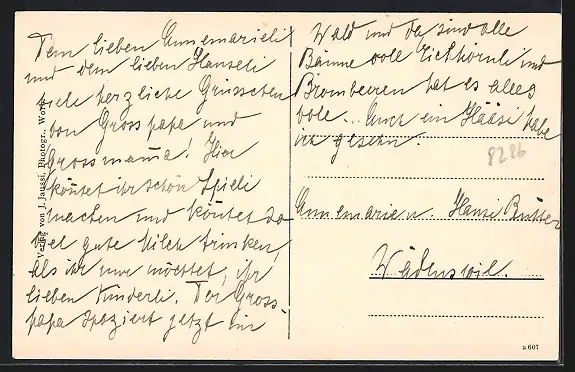 Dem lieben Annemarieli
und dem lieben Hanseli
viele herzliche Grüsschen
von Grosspapa und
Grossmama! Hier
könntet ihr schön Spieli
machen und könntet so
viel gute Milch trinken,
als ihr nur möchtet, ihr
lieben Kinderli. Der Gross-
papa spaziert jetzt im
Wald und da sind alle
Bäume voll Eichhörnli und
Brombeeren hat es alles
voll... Auch ein Hääsi habe
ich gesehn.
8286
Annemarie u. Hansi
Wädenswil.
Verlag von J. Jaussi, Photogr., Worb
a 607